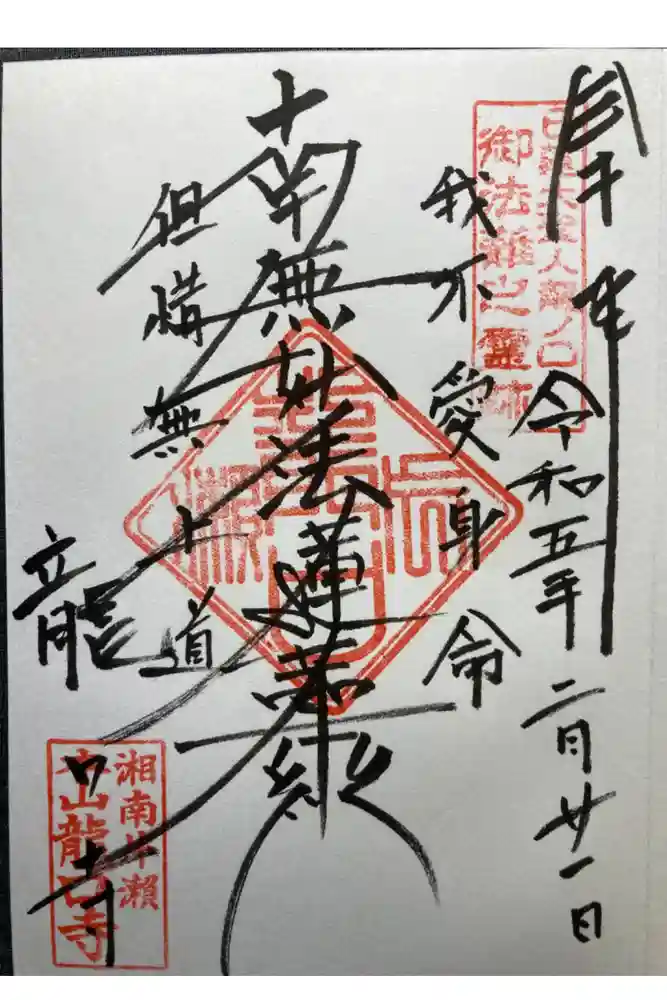 日蓮大聖人龍ノ口
御法難之靈跡
令和五年二月廿一日
我不愛身命
南無妙法蓮華経
但惜無上道
龍口寺
湘南片瀬
本山龍口寺